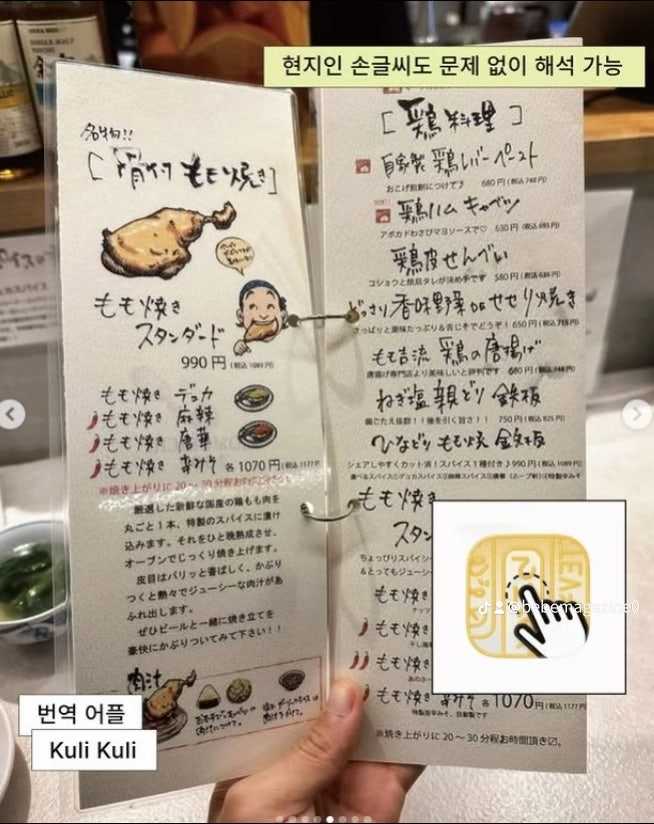 현지인 손글씨도 문제 없이 해석 가능
名物!!
[骨付 もも焼き]
もも焼き
スタンダード
990円(税込1089円)
もも焼き デュカ
もも焼き 麻辣
もも焼き 唐華
もも焼き 辛みそ 各1070円(税込1177円
※焼き上がりに20〜30分程お時間
厳選した新鮮な国産の鶏もも肉を
丸ごと1本、特製のスパイスに漬け
込みます。それをひと晩熟成させ、
オーブンでじっくり焼き上げます。
皮目はパリッと香ばしく、かぶり
つくと熱々でジューシーな肉汁があ
ふれ出します。
ぜひビールと一緒に焼き立てを
豪快にかぶりついてみて下さい!!
肉汁
[鶏料理]
自家製 鶏レバーペースト
おこげ煎餅につけて♪ 680円(税込748円)
鶏ハム キャベツ
アボカドわさびマヨソースで♡ 630円(税込693円)
鶏皮せんべい
コショウと焼鳥タレが決め手です 580円(税込638円)
どっさり香味野菜 on せせり焼き
さっぱりと薬味たっぷり&旨じそでどうぞ! 650円(税込715円)
もも吉流 鶏の唐揚げ
唐揚げ専門店より美味しいと評判です 680円(税込748円)
ねぎ塩 親どり 鉄板
歯ごたえ抜群!!後を引く旨さ!! 750円(税込825円)
ひなどり もも炎 鉄板
シェアしやすくカット済!スパイス1種付き♪990円(税込1089円)
もも焼き
スタン
ちょっぴりスパイシー
&とってもジューシー
もも焼き
もも焼き
もも焼き
もも焼き 辛みそ 各1070円(税込1177円
特製激辛みそ、自家製です
※焼き上がりに20〜30分程お時間頂き〼。
@bebemagazine0
번역 어플
Kuli Kuli